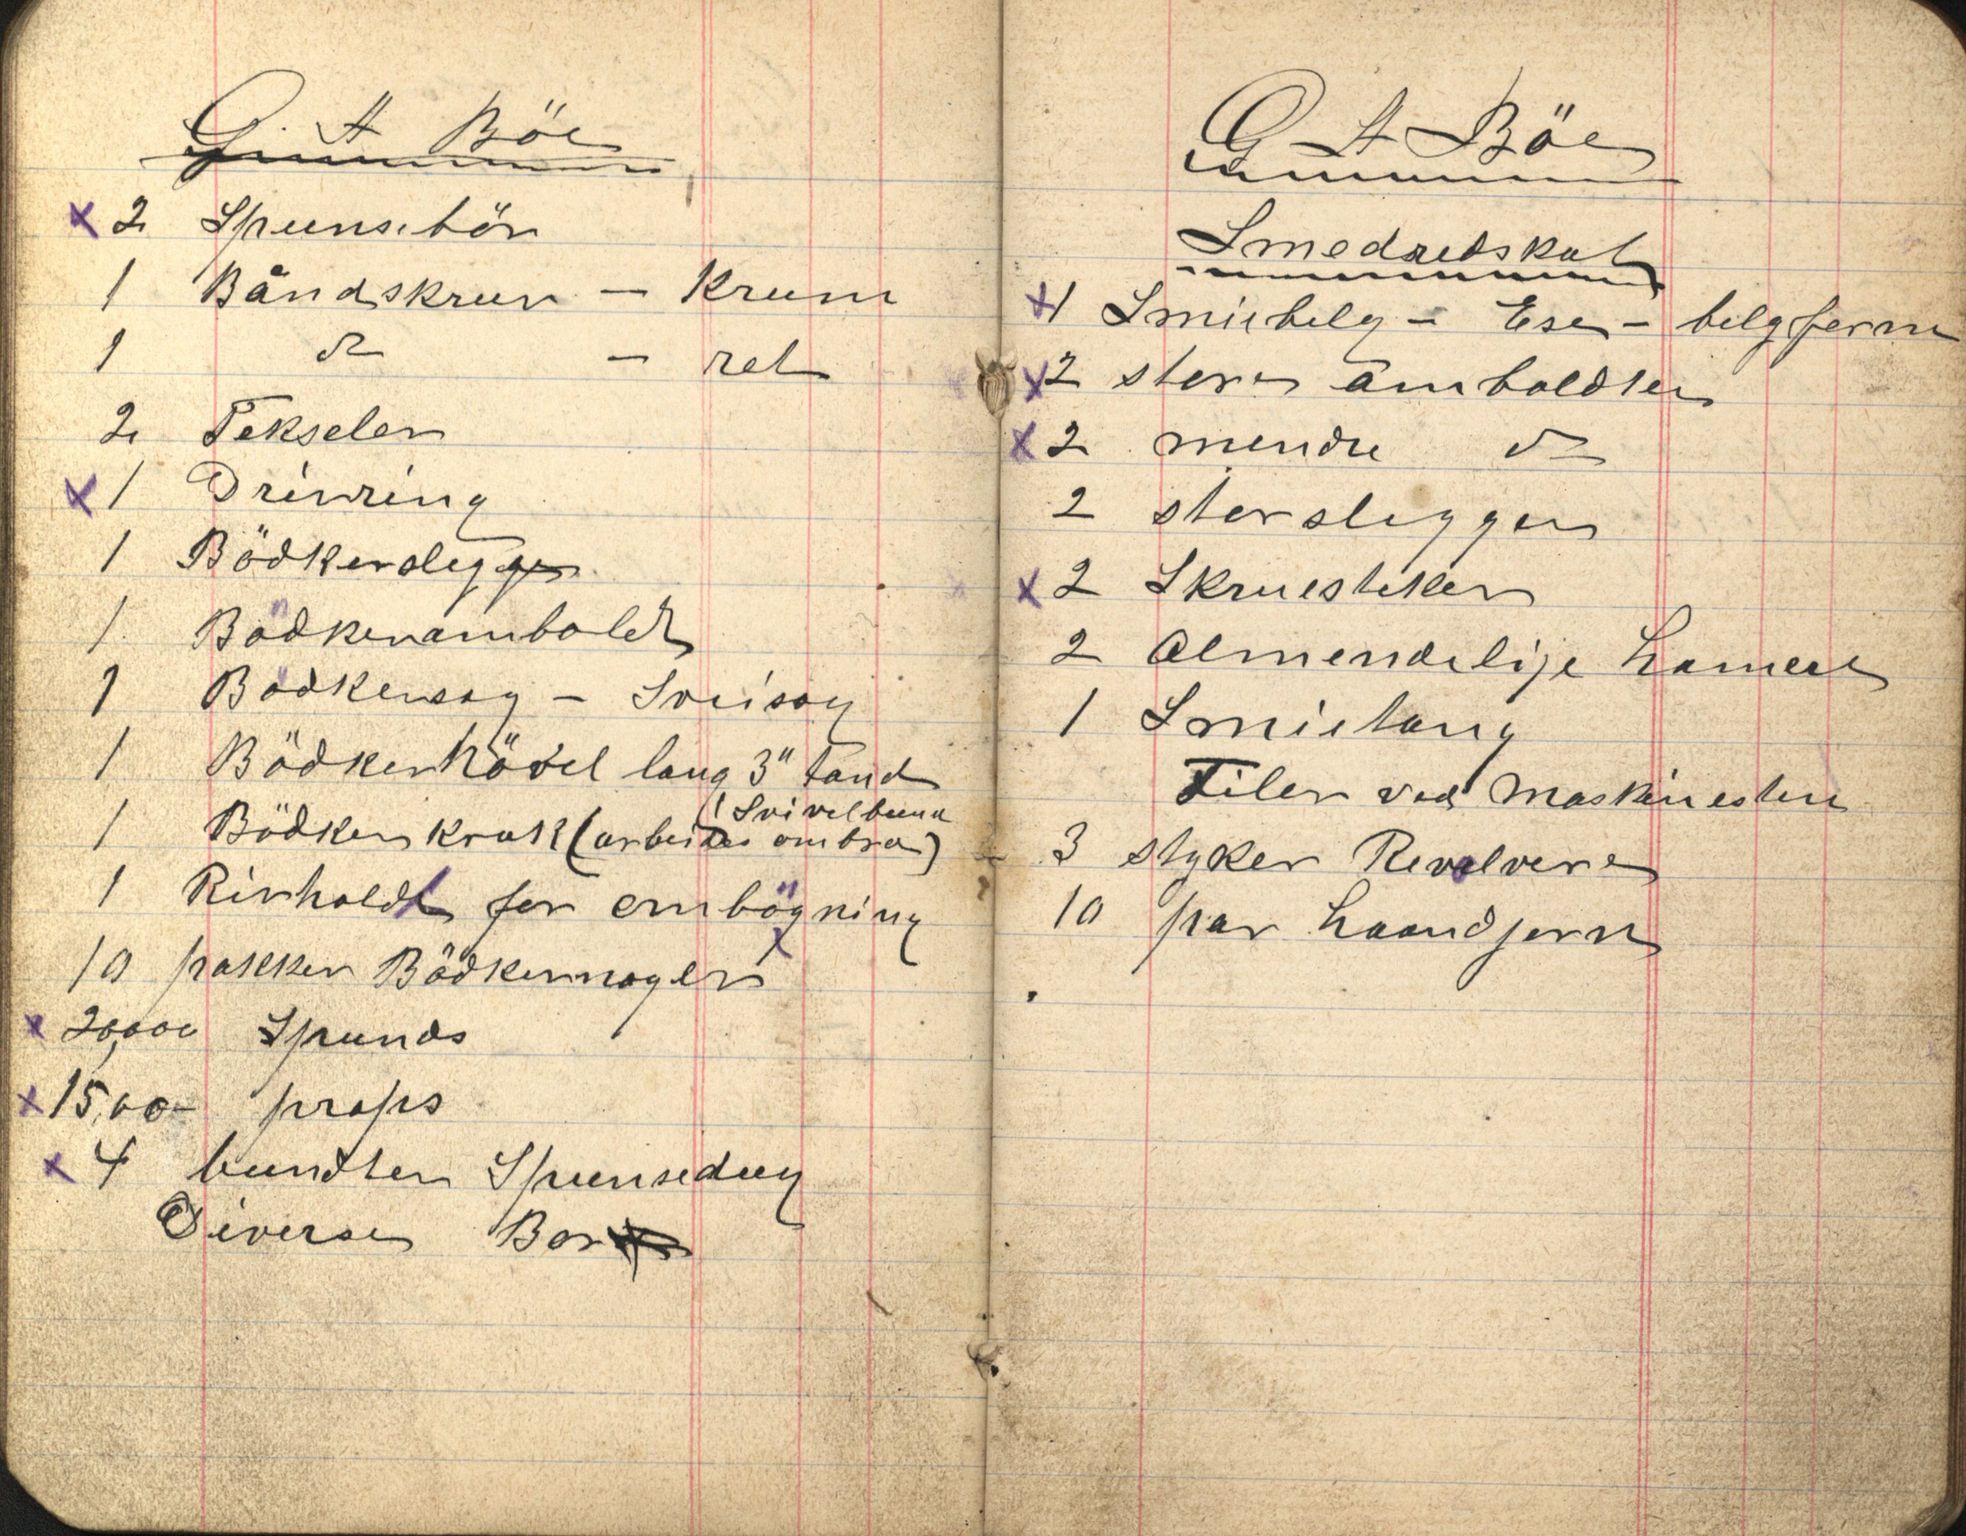 G. A Böe
x 2 Spunsebör
1 Båndskruv – Krum
1 do – ret
2 Tekseler
x 1 Drivring
1 Bödkerslegge
1 Bödkerambolt
1 Bödkersag – Sveisag
1 Bödkerhövel lang 3" tand
(1 Svivelbenk
1 Bödkerkrak (arbeides ombra)
1 Rivholdt for ombögning
10 pakker Bödkernagler x
x 20,000 Spunds
x 15,00– props
x 4 bundter Spunsedug
Diverse Bor
G A Böe
Smedredskab
x 1 Smiebelg – Ese – belgjern
x 2 store amboldter
x 2 mendre do
2 storslegger
x 2 Skruestiker
2 Almendelije hamere
1 Smietang
Filer ved Maskinesten
3 styker Revolvere
10 par haandjern